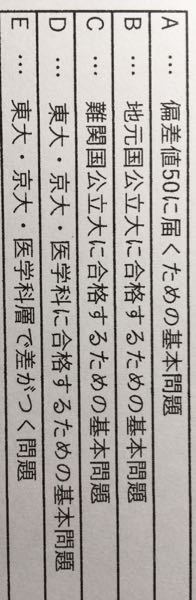 A … 偏差値50に届くための基本問題
B … 地元国公立大に合格するための基本問題
C … 難関国公立大に合格するための基本問題
D … 東大・京大・医学科に合格するための基本問題
E … 東大・京大・医学科層で差がつく問題